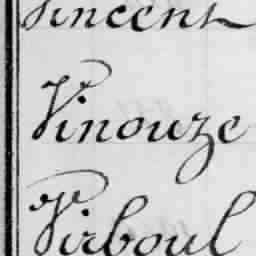 Vincent
Vinouze
Virboul